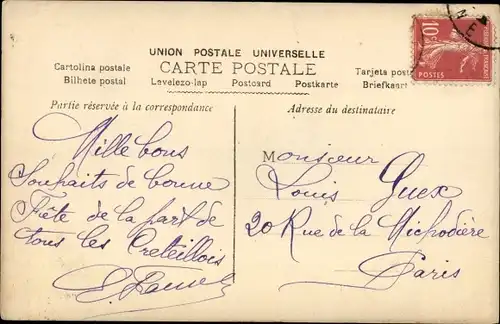 UNION POSTALE UNIVERSELLE
CARTE POSTALE
Cartolina postale
Bilhete postal
Levelezo-lap
Postcard
Postkarte
Tarjeta post
Briefkaart
10c
POSTES
Partie réservée à la correspondance
Mille bons
Souhaits de bonne
Fête de la part de
tous les Creteillois
Adresse du destinataire
Monsieur
Louis Guex
20 Rue de la Michodière
Paris